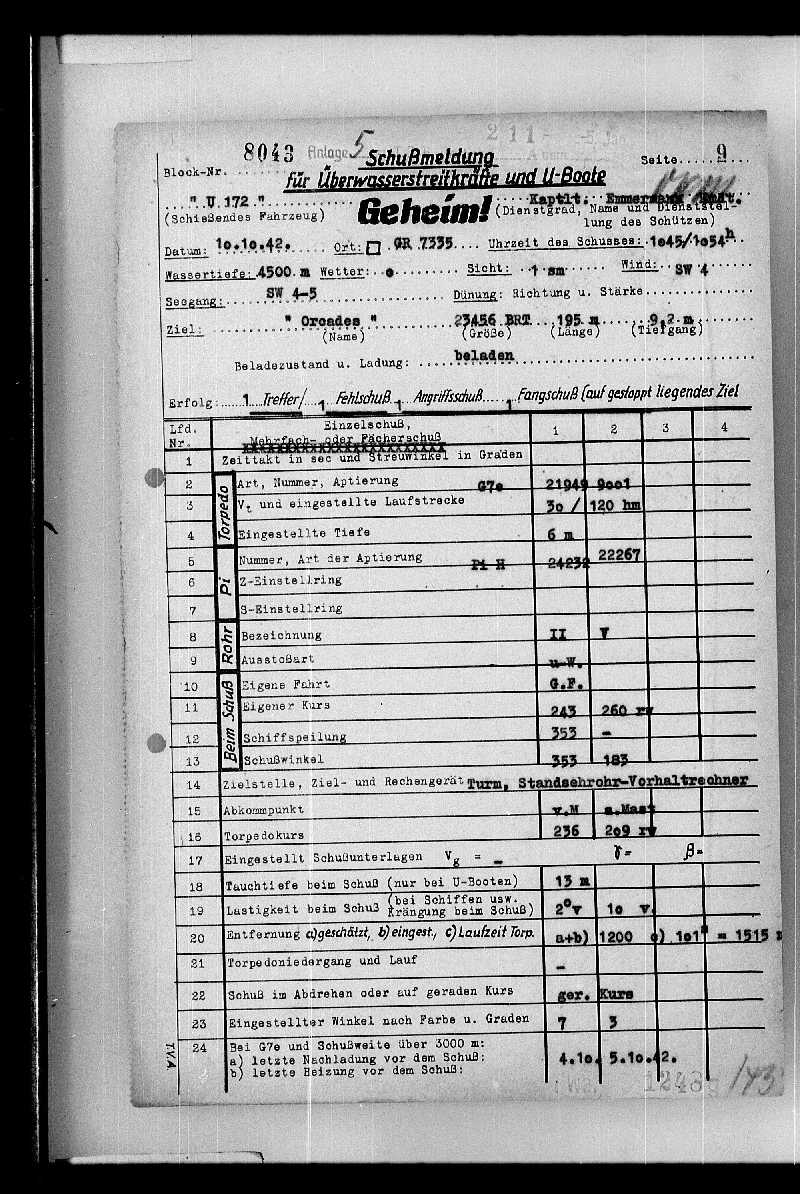 8043 Anlage 5 211-
Schußmeldung Seite..... 9
Block-Nr.
für Überwasserstreitkräfte und U-Boote
" U 172 " Geheim! Kaptlt. Emmermann
(Schießendes Fahrzeug) (Dienstgrad, Name und Dienststel-
lung des Schützen)
Datum: 1o.1o.42. Ort: □ GR 7335 Uhrzeit des Schusses: 1o45/1o54h
Wassertiefe: 4500 m Wetter: Sicht: 1 sm Wind: SW 4
Seegang: SW 4-5 Dünung: Richtung u. Stärke
Ziel: " Orcades " 23456 BRT 195 m 9,2 m
(Name) (Größe) (Länge) (Tiefgang)
Beladezustand u. Ladung: beladen
Erfolg: 1 Treffer/ 1 Fehlschuß 1 Angriffsschuß 1 Fangschuß (auf gestoppt liegendes Ziel
Lfd. Nr. Einzelschuß, Mehrfach- oder Fächerschuß 1 2 3 4
1 Zeittakt in sec und Streuwinkel in Graden
Torpedo
2 Art, Nummer, Aptierung G7e 21949 9oo1
3 Vt und eingestellte Laufstrecke 3o / 120 hm
4 Eingestellte Tiefe 6 m
Pi
5 Nummer, Art der Aptierung Pi H 24232 22267
6 Z-Einstellring
7 S-Einstellring
Rohr
8 Bezeichnung II V
9 Ausstoßart u.W.
Beim Schuß
10 Eigene Fahrt G.F.
11 Eigener Kurs 243 260 rw
12 Schiffspeilung 353 -
13 Schußwinkel 353 183
14 Zielstelle, Ziel- und Rechengerät Turm, Standsehrohr-Vorhaltrechner
15 Abkommpunkt v.M a.Mast
16 Torpedokurs 236 2o9 rw
17 Eingestellt Schußunterlagen Vg = - γ= β=
18 Tauchtiefe beim Schuß (nur bei U-Booten) 13 m
19 Lastigkeit beim Schuß (bei Schiffen usw. Krängung beim Schuß) 2°v 1o v.
20 Entfernung a)geschätzt, b)eingest., c)Laufzeit Torp. a+b) 1200 c) 1o1" = 1515
21 Torpedoniedergang und Lauf -
22 Schuß im Abdrehen oder auf geraden Kurs ger. Kurs
23 Eingestellter Winkel nach Farbe u. Graden 7 3
24 Bei G7e und Schußweite über 3000 m:
a) letzte Nachladung vor dem Schuß: 4.1o. 5.1o.42.
b) letzte Heizung vor dem Schuß:
T.V.A